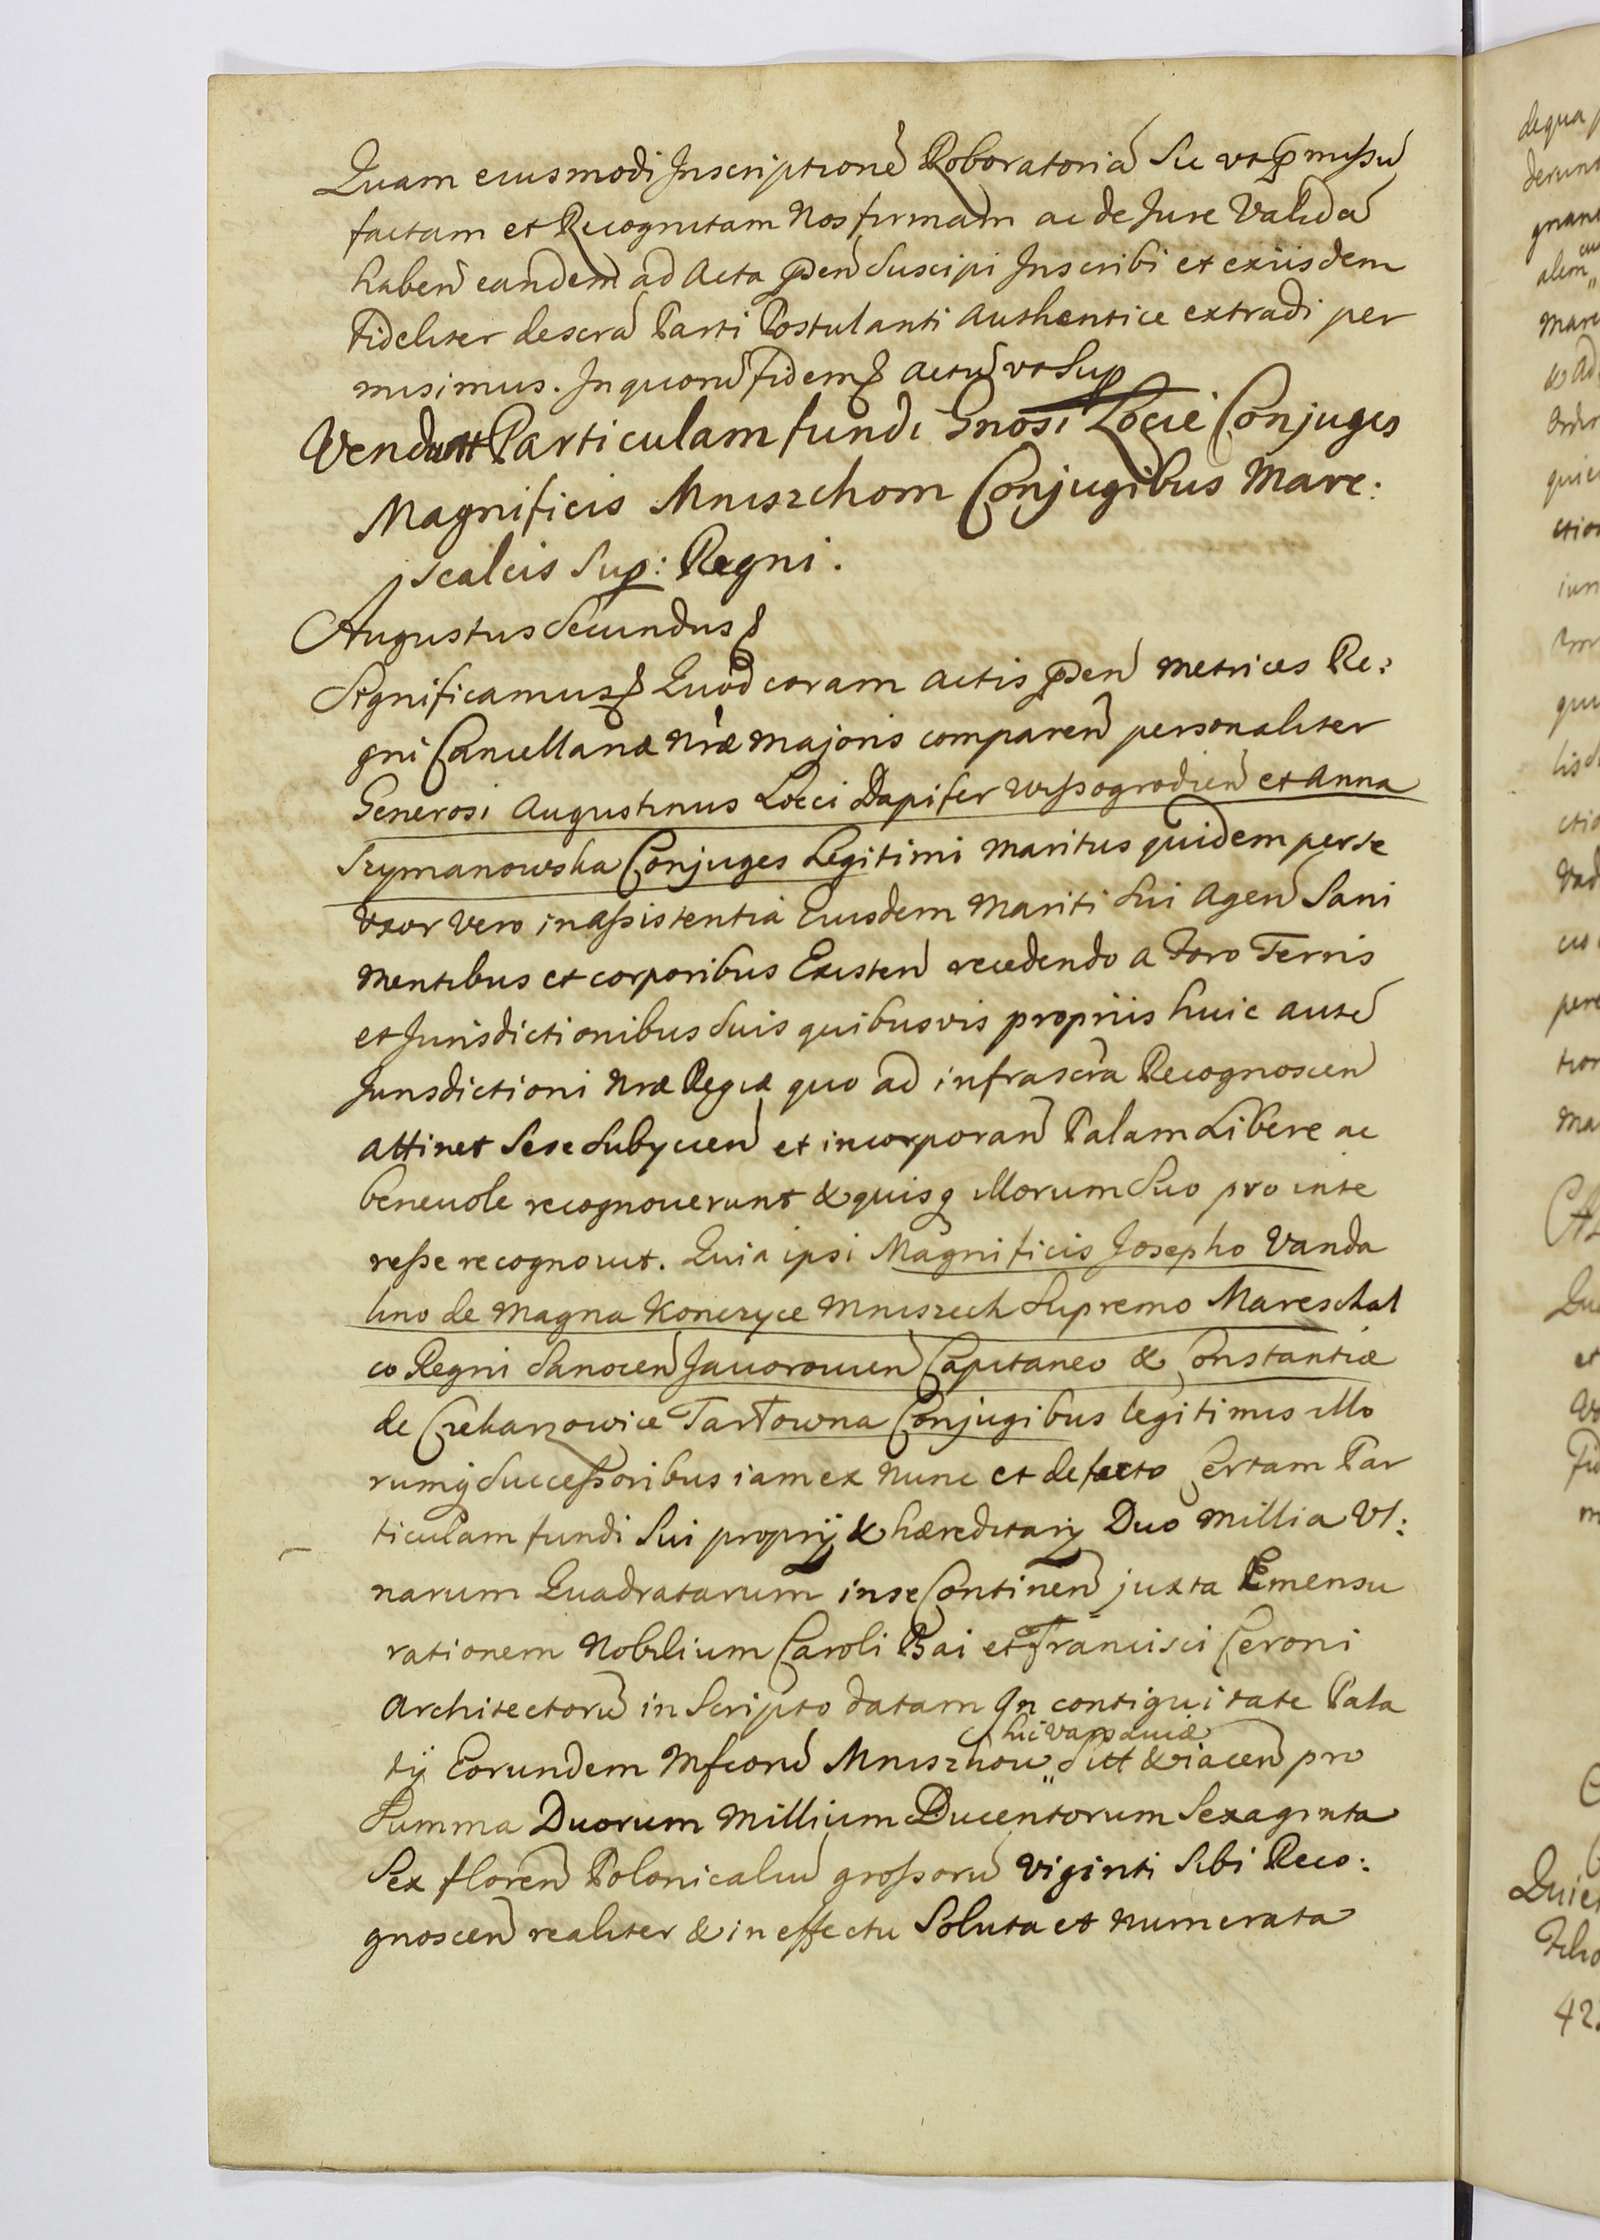 Quam eiusmodi Inscriptionẽ Roboratoriã Sic vt p̃missũ
factam et Recognitam Nos firmam ac de Jure Validã
habeñ eandem ad Acta p̃deñ Suscipi Inscribi et exiisdem
fideliter descrã Parti Postulanti Authentice extradi per
misimus. In quorũ fidem& Actũ vt Sup
Vendunt Particulam fundi Gnosi Locie Conjuges
Magnificis Mniszchom Conjugibus Mare:
scalcis Sup: Regni.
Augustus Secundus&
Significamus& Quod coram Actis p̃deñ Metrices Re:
gni Cancellariæ Nræ Majoris compareñ personaliter
Generosi Augustinus Locci Dapifer Wissogrodieñ et Anna
Szymanowska Conjuges Legitimi Maritus quidem per se
Vxor Vero in assistentia Eiusdem Mariti Sui Ageñ Sani
Mentibus et corporibus Existeñ recedendo a Foro Terris
et Jurisdictionibus Suis quibusvis propriis huic autẽ
Jurisdictioni Nræ Regiæ quo ad infrascrã Recognosceñ
attinet Sese Subycieñ et incorporañ Palam Libere ac
beneuole recognouerunt & quisq illorum Suo pro inte
resse recognouit. Quia ipsi Magnificis Josepho Vanda
lino de Magna Konczyce Mniszech Supremo Mareschal
co Regni Sanoceñ Jauorouieñ Capitaneo & Constantiæ
de Czekarzowice Tarłowna Conjugibus legitimis illo
rumq Successoribus iam ex Nunc et de facto Certam Par
ticulam fundi Sui proprij & hæreditarij Duo Millia Vl:
narum Quadratarum in se Contineñ juxta Emensu
rationem Nobilium Caroli Bai et Francisci Ceroni
Architectorũ in Scripto datam In contiguitate Pala
hic Varsauiæ
tij Eorundem Mficorũ Mniszhow„ Sitt & iaceñ pro
Summa Duorum Millium Ducentorum Sexaginta
Sex floreñ Polonicaliũ grossorũ viginti Sibi Reco:
gnosceñ realiter & in effectu Soluta et numerata